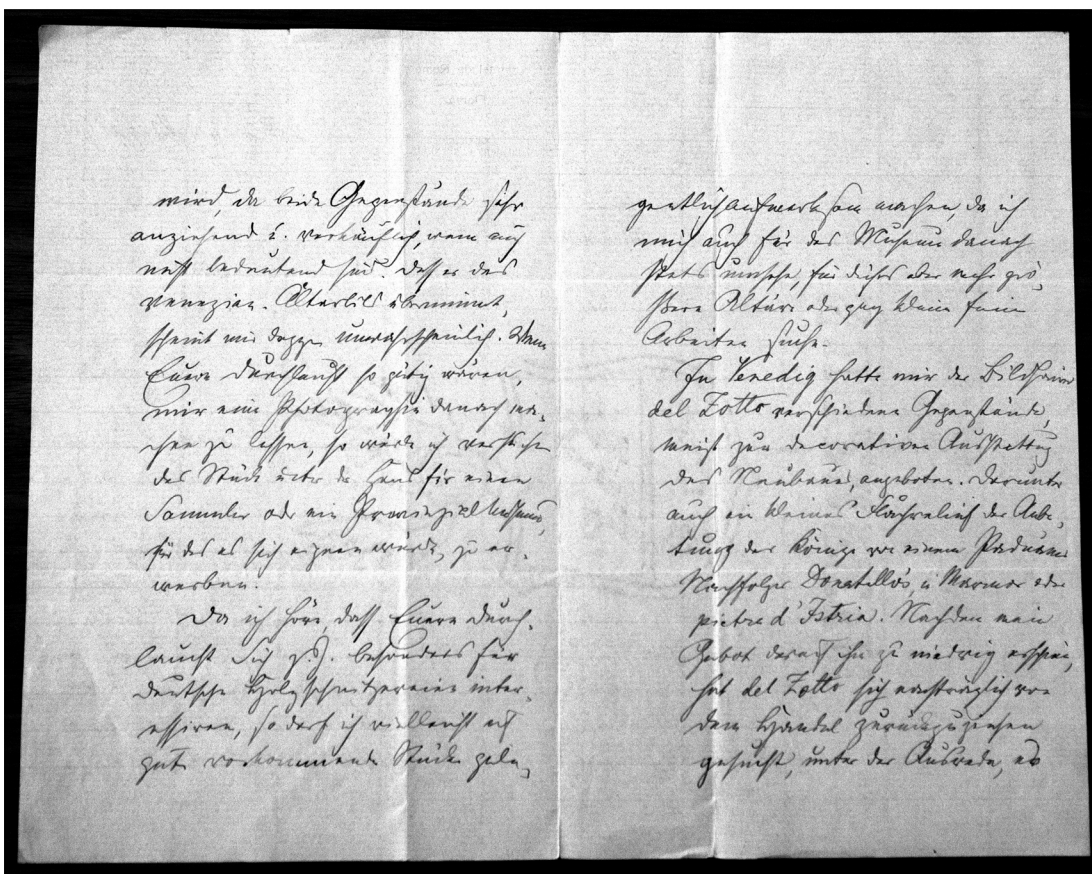 wird, da beide Gegenstände sehr
anziehend u. verkäuflich, wenn auch
nicht bedeutend sind. Dass er das
venezian. Altarbild übernimmt,
scheint mir dagegen unwahrscheinlich. Wenn
Euere Durchlaucht so gütig wären,
mir eine Photographie danach ma-
chen zu lassen, so würde ich versuchen
das Stück unter der Hand für einen
Sammler oder ein Provinzialmuseum,
für das es sich eignen würde, zu er-
werben.
Da ich höre dass Euere Durch-
laucht Sich z. Z. besonders für
deutsche Holzschnitzereien inter-
essiren, so darf ich vielleicht auf
gute vorkommende Stücke gele-
gentlich aufmerksam machen, da ich
mich auch für das Museum danach
stets umsehe, für dieses aber mehr grö-
ßere Altäre oder ganz kleine feine
Arbeiten suche.
In Venedig hatte mir der Bildhauer
del Zotto verschiedene Gegenstände,
meist zur decorativen Ausstattung
des Neubaues, angeboten. Darunter
auch ein kleines Flachrelief der Anbe-
tung der Könige von einem Paduaner
Nachfolger Donatello's, in Marmor oder
pietra d'Istria. Nachdem mein
Gebot darauf ihm zu niedrig erschien,
hat del Zotto sich nachträglich von
dem Handel zurückzuziehen
gesucht, unter der Ausrede, es